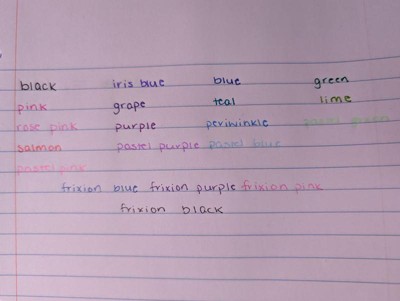 black iris blue blue green
pink grape teal lime
rose pink purple periwinkle pastel green
salmon pastel purple pastel blue
pastel pink
frixion blue frixion purple frixion pink
frixion black